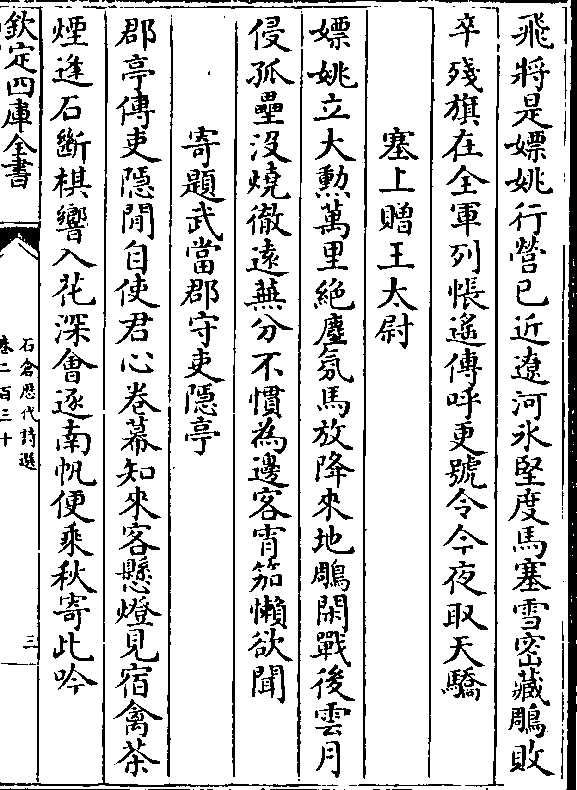 飛將是嫖姚行營已近遼河氷堅度馬塞雪密藏鵰敗
卒殘旗在全軍列帳遙傳呼更號令今夜取天驕
塞上贈王太尉
嫖姚立大勲萬里絶塵氛馬放降來地鵰閑戰後雲月
侵孤壘没燒徹遠蕪分不慣為邊客宵笳懶欲聞
寄題武當郡守吏隱亭
郡亭傳吏隱閒自使君心卷幕知來客懸燈見宿禽茶
煙逢石斷棋響入花深會逐南帆便乘秋寄此吟
欽定四庫全書
石倉歴代詩選
卷二百三十
三